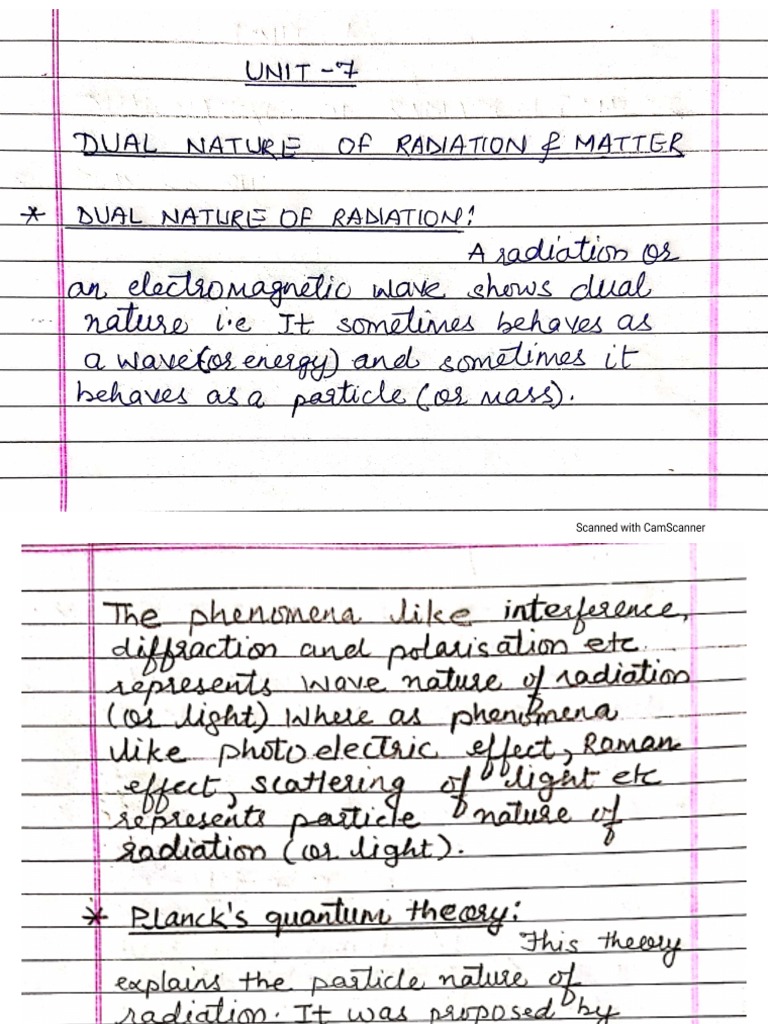 UNIT -7
DUAL NATURE OF RADIATION & MATTER
* DUAL NATURE OF RADIATION:
A radiation or
an electromagnetic wave shows dual
nature i.e It sometimes behaves as
a wave(or energy) and sometimes it
behaves as a particle (or mass).
Scanned with CamScanner
The phenomena like interference,
diffraction and polarisation etc.
represents wave nature of radiation
(or light) Where as phenomena
like photo electric effect, Roman
effect, scattering of light etc
represents particle nature of
radiation (or light).
* Planck's quantum theory:
This theory
explains the particle nature of
radiation. It was proposed by